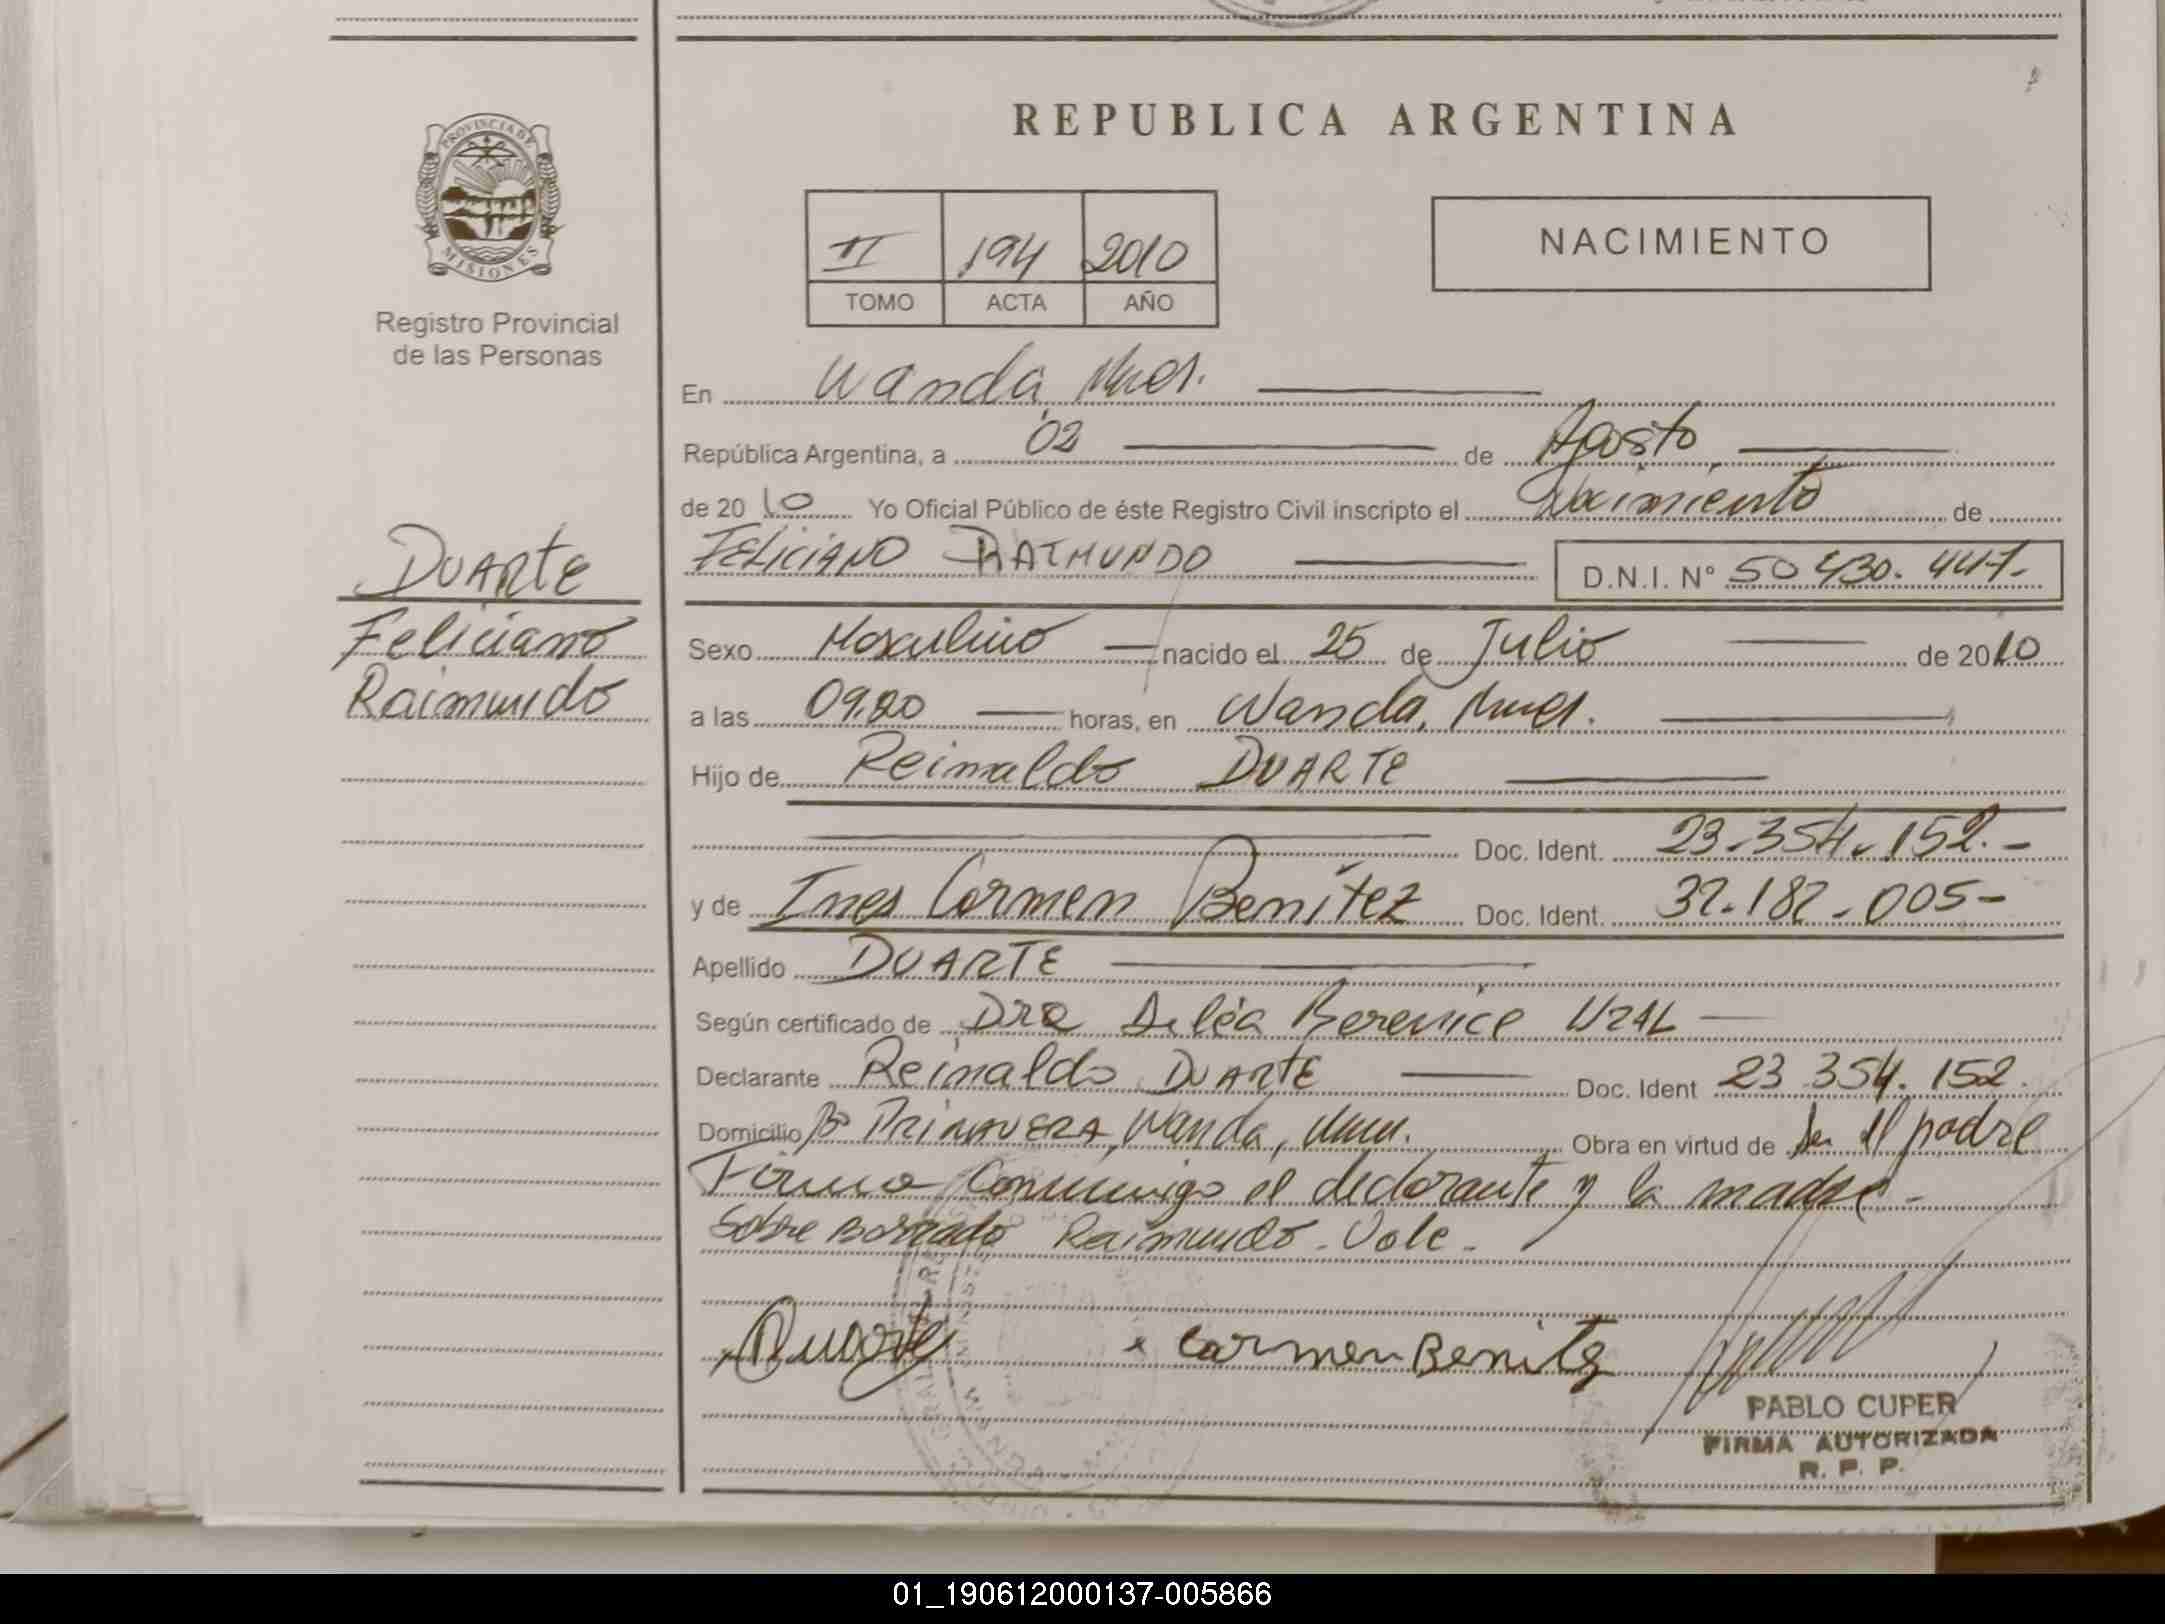 REPUBLICA ARGENTINA
PROVINCIA DE
MISIONES
Registro Provincial
de las Personas
II 194 2010
TOMO ACTA AÑO
NACIMIENTO
En Wanda, Mnes.
República Argentina, a 02 de Agosto
de 2010 Yo Oficial Público de éste Registro Civil inscripto el Nacimiento de
FELICIANO RAIMUNDO D.N.I. Nº 50 430. 447-
DUARTE
Feliciano
Raimundo
Sexo Masculino nacido el 25 de Julio de 2010
a las horas, en Wanda, Mnes.
Hijo de Reinaldo DUARTE
Doc. Ident. 23-354-152.-
y de Ines Carmen Benítez Doc. Ident. 32-182-005-
Apellido DUARTE
Según certificado de Dra Berenice
Declarante Reinaldo DUARTE Doc. Ident 23 354. 152.
Domicilio Bº PRIMAVERA, Wanda, Mnes. Obra en virtud de Ser el padre
Firma Conmigo el declarante y la madre-
Sobre Borrado Raimundo. Vale-
Duarte x Carmen Benitez
PABLO CUPER
FIRMA AUTORIZADA
R. P. P.
01_190612000137-005866